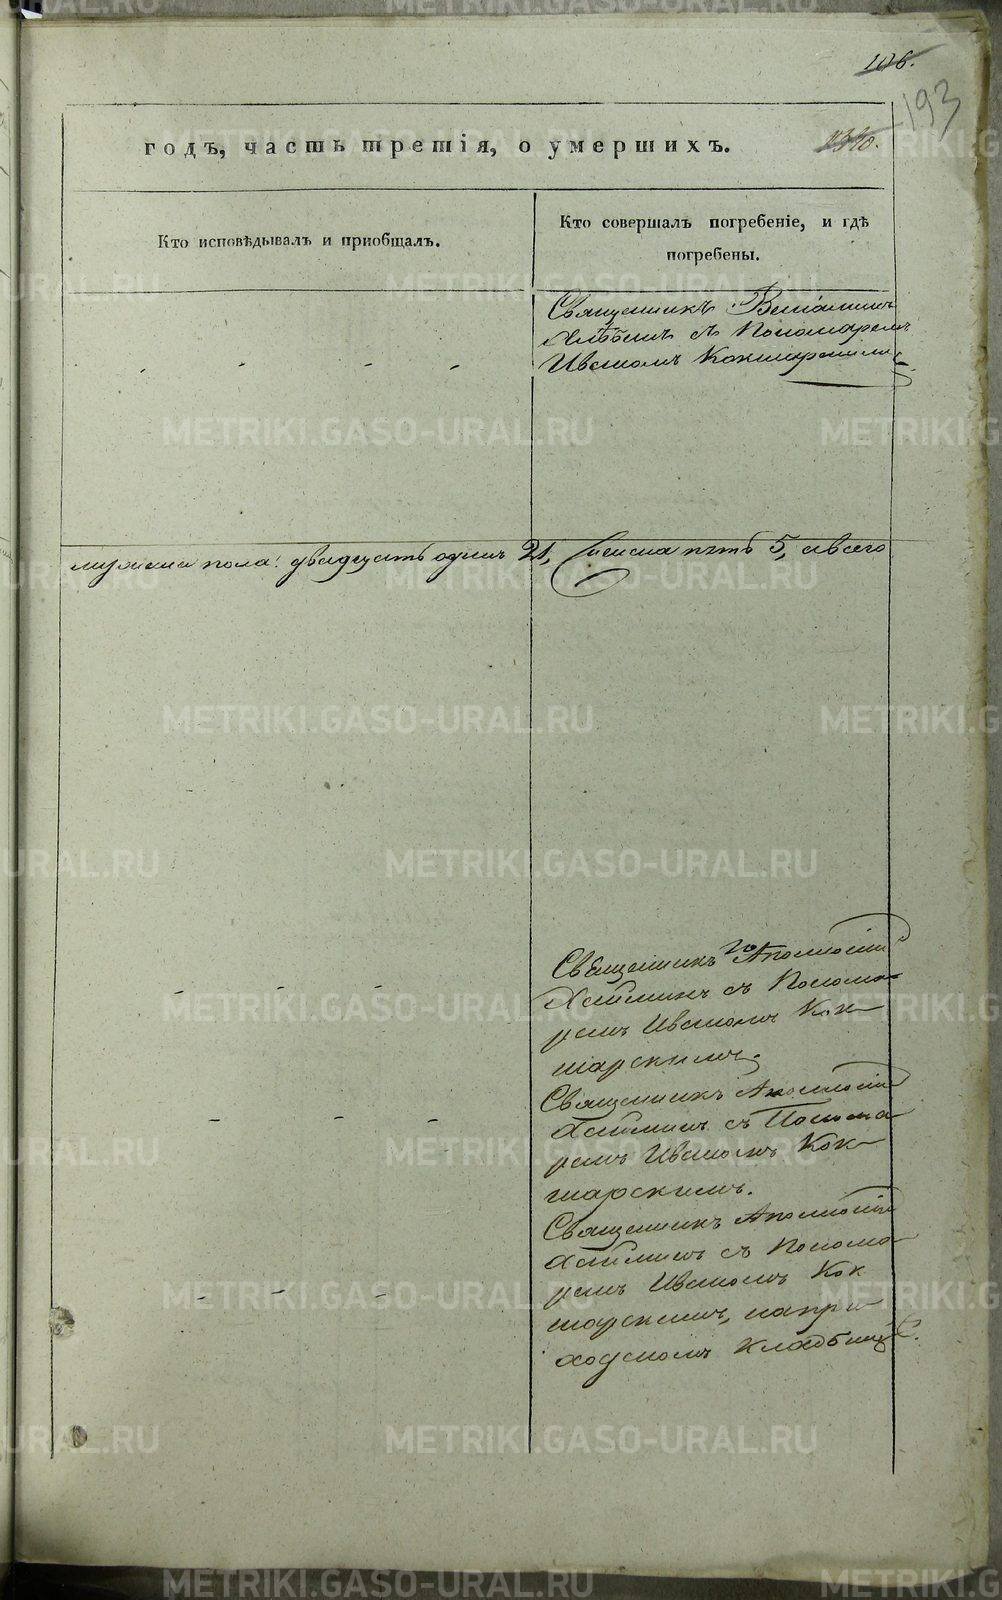 106.
193
1390.
годъ, часть третія, о умершихъ.
Кто исповѣдывалъ и пріобщалъ.
Кто совершалъ погребеніе, и гдѣ
погребены.
Священникъ
съ Пономаремъ
Иваномъ Кокшарскимъ
мужеска пола: двадцать одинъ 21, женска пять 5, а всего
Священникъ Аполлоній
съ Понома
ремъ Иваномъ Кок
шарскимъ.
Священникъ Аполлоній
съ Понома
ремъ Иваномъ Кок
шарскимъ.
Священникъ Аполлоній
съ Понома
ремъ Иваномъ Кок
шарскимъ, на при
ходскомъ кладбищѣ.
METRIKI.GASO-URAL.RU